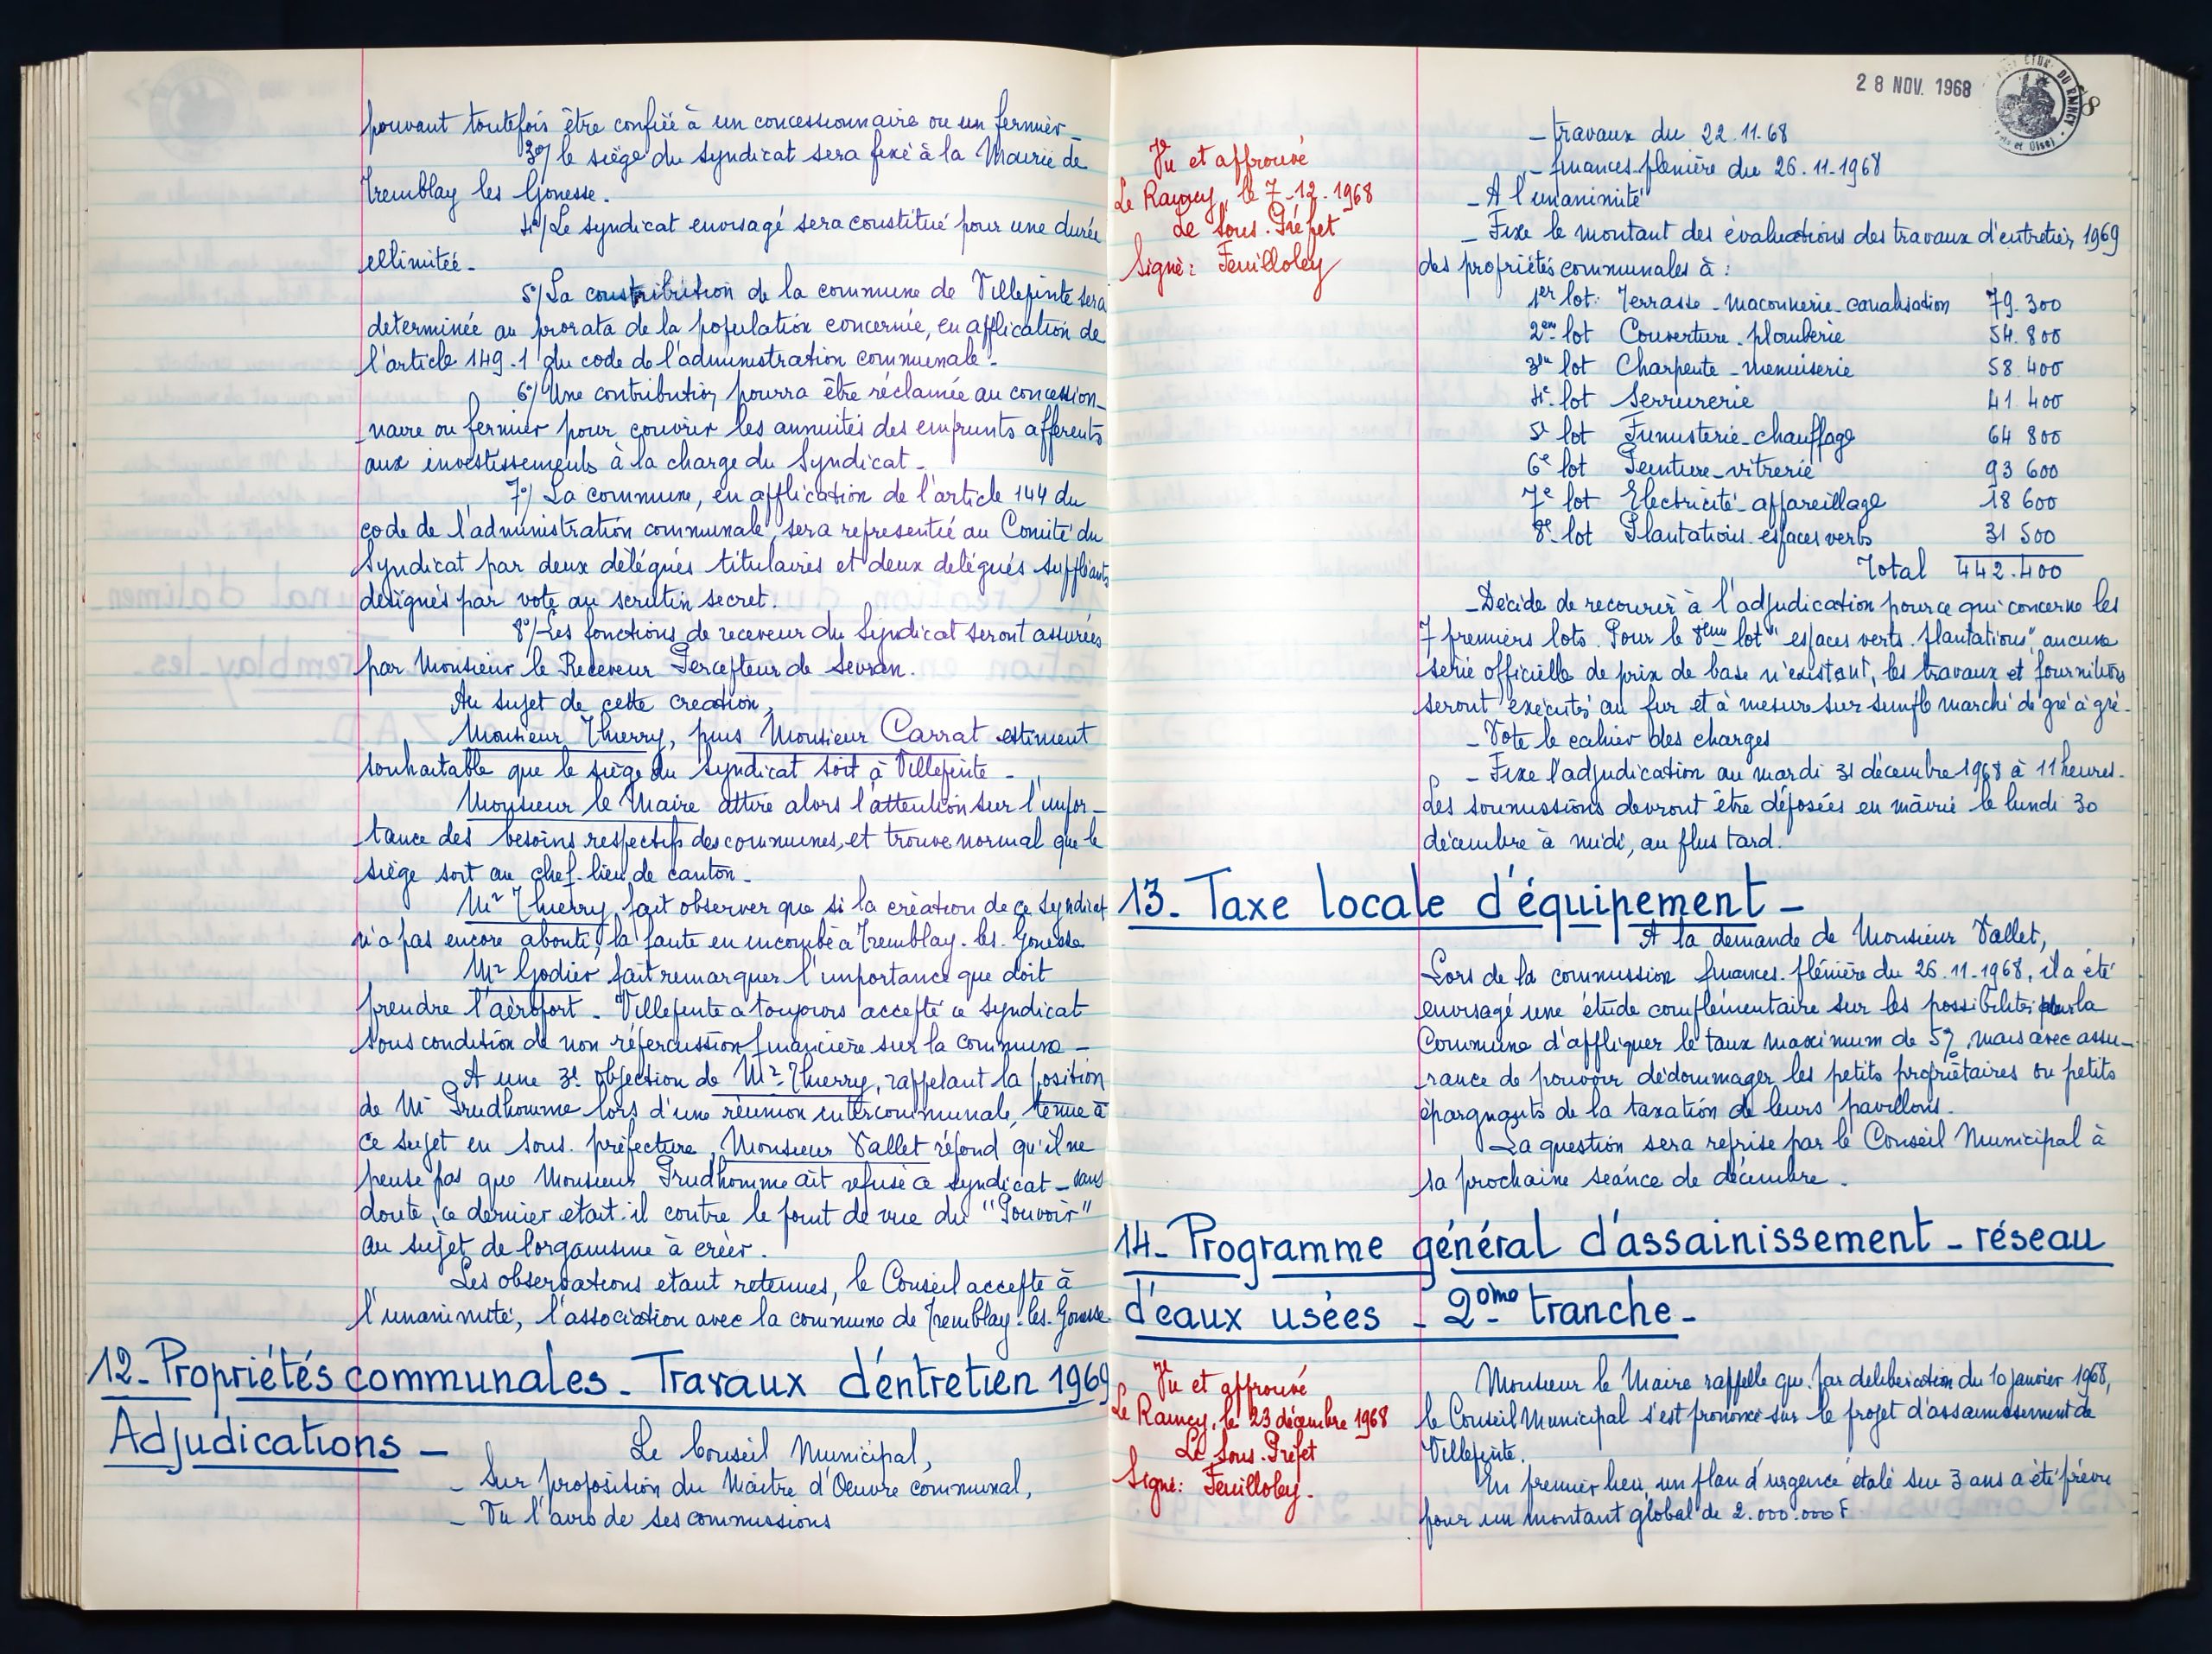 pouvant toutefois être confiée à un concessionnaire ou un fermier_
3°/ le siège du syndicat sera fixé à la Mairie de
Tremblay les Gonesse.
4°/ Le syndicat envisagé sera constitué pour une durée
illimitée_
5°/ La contribution de la commune de Villepinte sera
determinée au prorata de la population concernée, en application de
l'article 149.1 du code de l'administration communale_
6°/ Une contribution pourra être réclamée au concession_
_naire ou fermier pour couvrir les annuités des emprunts afférents
aux investissements à la charge du Syndicat_
7°/ La commune, en application de l'article 144 du
code de l'administration communale, sera representée au Comité du
Syndicat par deux délégués titulaires et deux delégués suppléants
designés par vote au scrutin secret.
8°/ Les fonctions de receveur du Syndicat seront assurées
par Monsieur le Receveur Percepteur de Sevran.
Au sujet de cette creation,
Monsieur Thierry, puis Monsieur Carrat estiment
souhaitable que le siège du Syndicat soit à Villepinte_
Monsieur le Maire attire alors l'attention sur l'impor_
tance des besoins respectifs des communes, et trouve normal que le
siège soit au chef-lieu de canton_
Mr Thierry, fait observer que si la création de ce Syndicat
n'a pas encore abouti, la faute en incombe à Tremblay-les-Gonesse
Mr Godier fait remarquer l'importance que doit
prendre l'aéroport_ Villepinte a toujours accepté ce Syndicat
sous condition de non répercussion financière sur la commune_
A une 3e objection de Mr Thierry, rappelant la position
de Mr Prudhomme lors d'une réunion intercommunale, tenue à
ce sujet en sous-préfecture, Monsieur Vallet répond qu'il ne
pense pas que Monsieur Prudhomme ait refusé ce syndicat_ sans
doute, ce dernier était-il contre le point de vue du "Pouvoir"
au sujet de l'organisme à créer.
Les observations etant retenues, le Conseil accepte à
l'unanimité, l'association avec la commune de Tremblay-les-Gonesse
12_ Propriétés communales_ Travaux d'entretien 1969
Adjudications_
Le Conseil Municipal,
_ Sur proposition du Maitre d'Oeuvre communal,
_ Vu l'avis de ses commissions
28 NOV. 1968
DU RAINCY
et Oise)
_ travaux du 22.11.68
_ finances-plénière du 26.11.1968
_ A l'unanimité
_ Fixe le montant des évaluations des travaux d'entretien 1969
des propriétés communales à :
1er lot: Terrasse_maconnerie_canalisation 79.300
2em lot Couverture_plomberie 54.800
3em lot Charpente_menuiserie 58.400
4e lot Serrurerie 41.400
5e lot Fumisterie_chauffage 64 800
6e lot Peinture_vitrerie 93 600
7e lot Electricité_appareillage 18 600
8e lot Plantations_espaces verts 31 500
Total 442.400
_Décide de recourir à l'adjudication pour ce qui concerne les
7 premiers lots. Pour le 8eme lot "espaces verts-plantations", aucune
serie officielle de prix de base n'existant, les travaux et fournitures
seront executés au fur et à mesure sur simple marché de gré à gré_
_ Vote le cahier des charges
_ Fixe l'adjudication au mardi 31 décembre 1968 à 11 heures_
Les soumissions devront être déposées en mairie le lundi 30
décembre à midi, au plus tard.
Vu et approuvé
Le Raincy, le 7.12.1968
Le Sous-Préfet
Signé: Feuilloley
13_ Taxe locale d'équipement_
A la demande de Monsieur Vallet,
Lors de la commission finances-plénière du 26.11.1968, il a été
envisagé une étude complémentaire sur les possibilités pour la
Commune d'appliquer le taux maximum de 5%, mais avec assu_
_rance de pouvoir dédommager les petits propriétaires ou petits
épargnants de la taxation de leurs pavillons.
La question sera reprise par le Conseil Municipal à
sa prochaine séance de décembre.
14_ Programme général d'assainissement_réseau
d'eaux usées_2ème tranche_
Vu et approuvé
Le Raincy, le 23 décembre 1968
Le Sous-Préfet
Signé: Feuilloley_
Monsieur le Maire rappelle que par deliberation du 10 janvier 1968,
le Conseil Municipal s'est prononcé sur le projet d'assainissement de
Villepinte.
En premier lieu, un plan d'urgence étalé sur 3 ans a été prévu
pour un montant global de 2.000.000 F